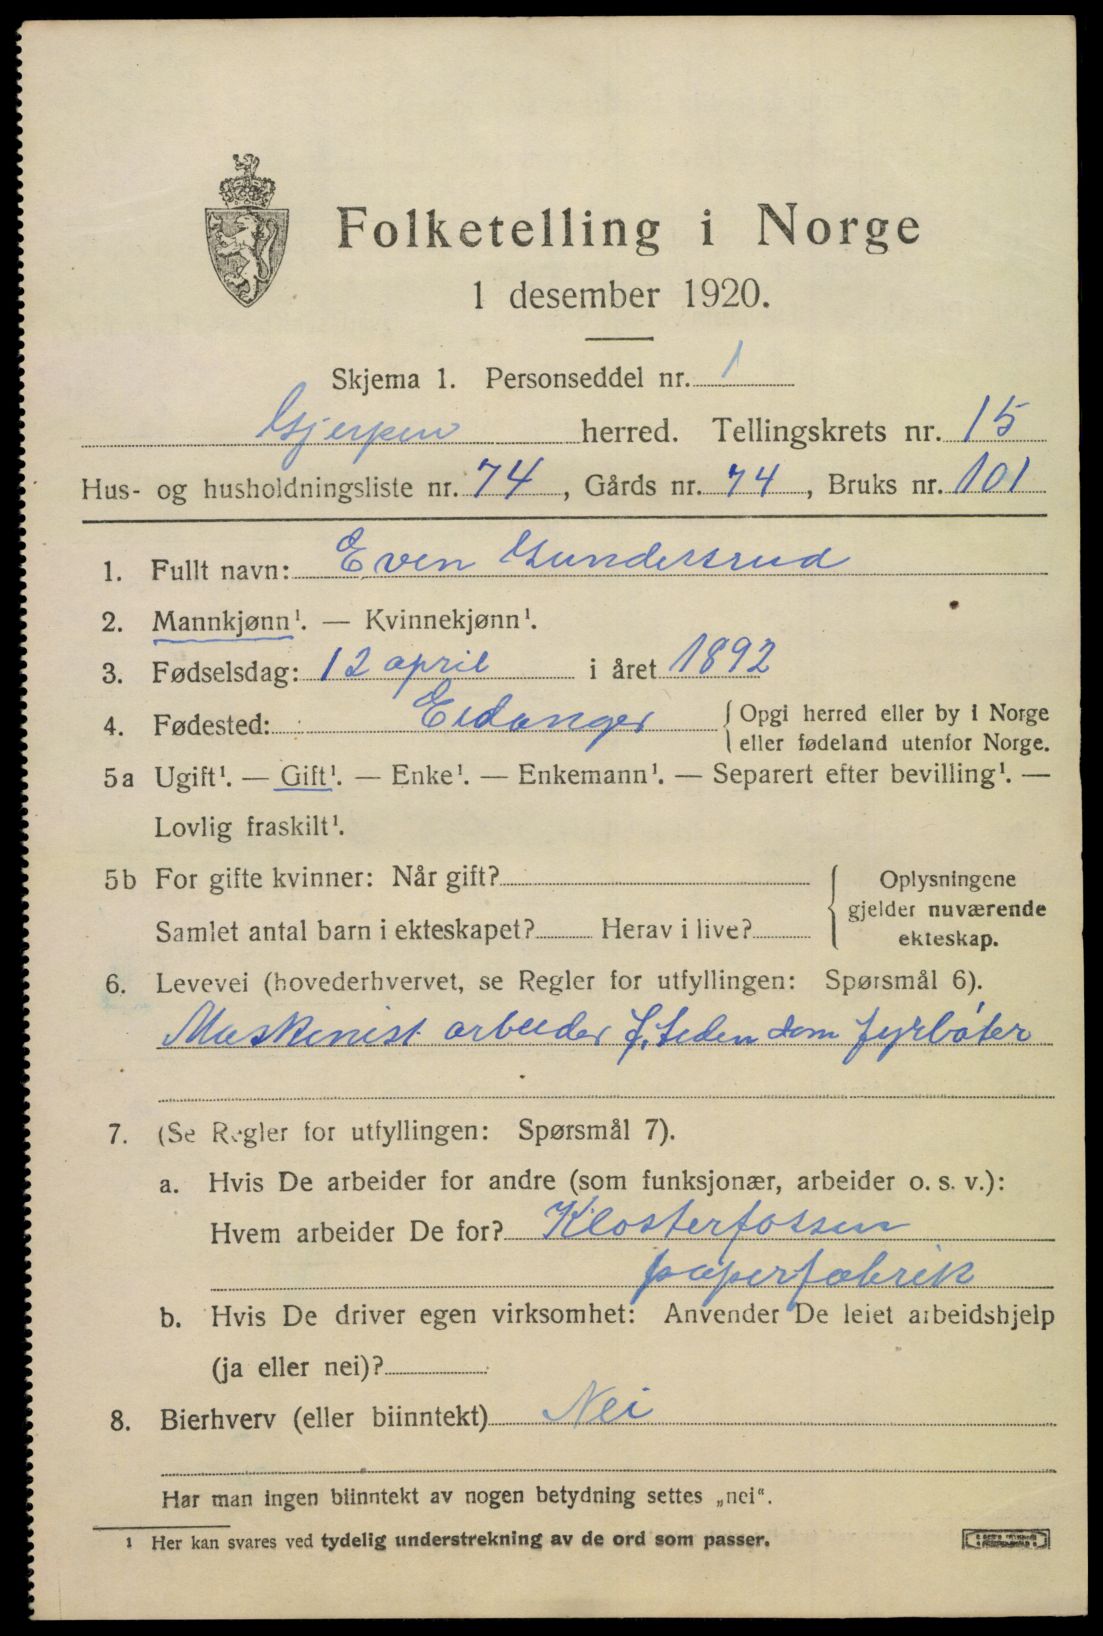 Folketelling i Norge
1 desember 1920.
Skjema 1. Personseddel nr. 1
Gjerpen herred. Tellingskrets nr. 15
Hus- og husholdningsliste nr. 74, Gårds nr. 74, Bruks nr. 101
1. Fullt navn: Even Gundersrud
2. Mannkjønn¹. — Kvinnekjønn¹.
3. Fødselsdag: 12 april i året 1892
4. Fødested: Eidanger { Opgi herred eller by i Norge
eller fødeland utenfor Norge.
5a Ugift¹. — Gift¹. — Enke¹. — Enkemann¹. — Separert efter bevilling¹. —
Lovlig fraskilt¹.
5b For gifte kvinner: Når gift? { Oplysningene
gjelder nuværende
Samlet antal barn i ekteskapet? Herav i live? ekteskap.
6. Levevei (hovederhvervet, se Regler for utfyllingen: Spørsmål 6).
Maskenist arbeider f. tiden som fyrbøter
7. (Se Regler for utfyllingen: Spørsmål 7).
a. Hvis De arbeider for andre (som funksjonær, arbeider o. s. v.):
Hvem arbeider De for? Klosterfossen
papirfabrik
b. Hvis De driver egen virksomhet: Anvender De leiet arbeidshjelp
(ja eller nei)?
8. Bierhverv (eller biinntekt) Nei
Har man ingen biinntekt av nogen betydning settes „nei“.
¹ Her kan svares ved tydelig understrekning av de ord som passer.